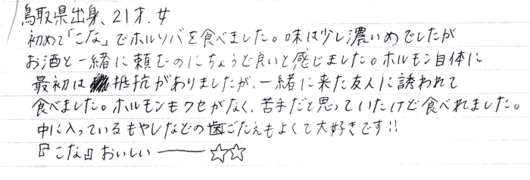 鳥取県出身、21才、女
初めて「こな」でホルソバを食べました。味は少し濃いめでしたが
お酒と一緒に頼むのにちょうど良いと感じました。ホルモン自体に
最初は抵抗がありましたが、一緒に来た友人に誘われて
食べました。ホルモンもクセがなく、苦手だと思っていたけど食べれました。
中に入っているもやしなどの歯ごたえもよくて大好きです!!
『こな』おいしい――☆☆